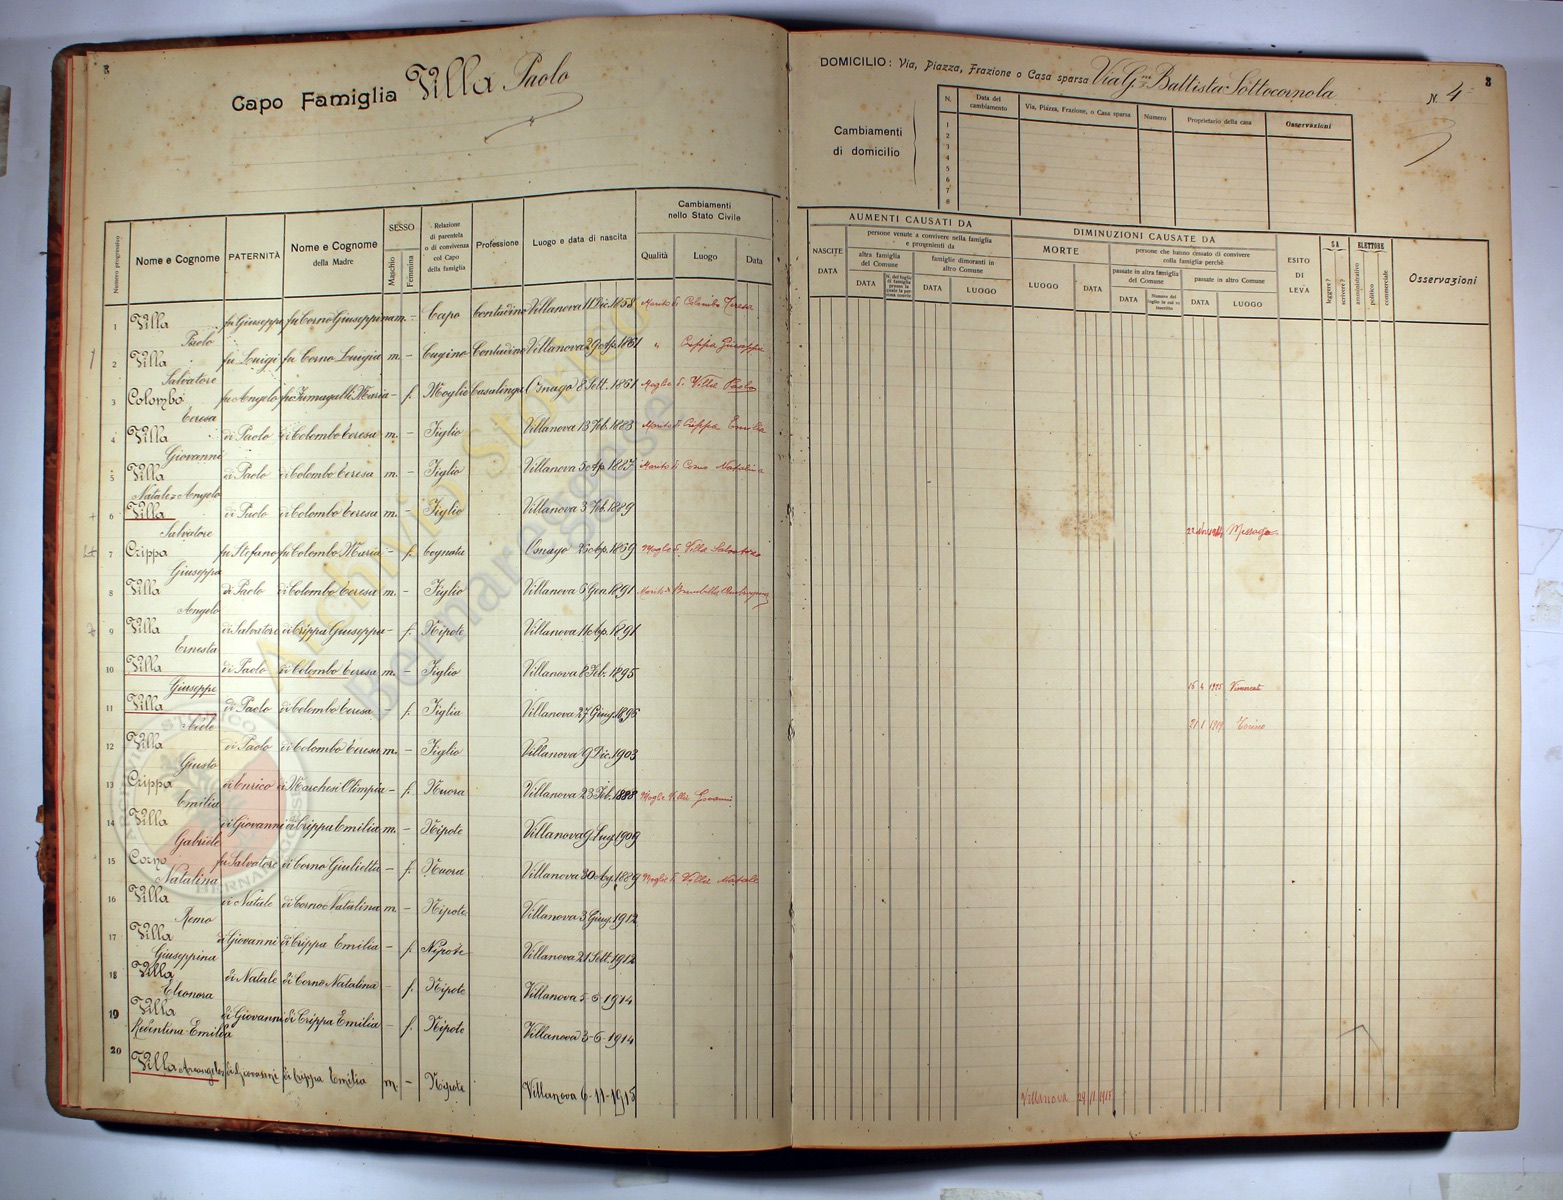 3
Capo Famiglia Villa Paolo
Numero progressivo
Nome e Cognome
PATERNITÀ
Nome e Cognome
della Madre
SESSO
Maschio
Femmina
Relazione
di parentela
o di convivenza
col Capo
della famiglia
Professione
Luogo e data di nascita
Cambiamenti
nello Stato Civile
Qualità
Luogo
Data
1 Villa Paolo fu Giuseppe fu Corno Giuseppina m. - Capo Contadino Villanova 11 Dic. 1858 Marito di Colombo Teresa
2 Villa Salvatore fu Luigi fu Corno Luigia m - Cugino Contadino Villanova 29 Ap. 1861 " Crippa Giuseppa
3 Colombo Teresa fu Angelo fu Fumagalli Maria - f. Moglie Casalinga Osnago 8 Sett. 1861 Moglie di Villa Paolo
4 Villa Giovanni di Paolo di Colombo Teresa m. - Figlio Villanova 13 Feb. 1883 Marito di Crippa Emilia
5 Villa Natale Angelo di Paolo di Colombo Teresa m. - Figlio Villanova 5 Ap. 1887 Marito di Corno Natalina
6 Villa Salvatore di Paolo di Colombo Teresa m. - Figlio Villanova 3 Feb. 1889
7 Crippa Giuseppa fu Stefano fu Colombo Maria - f. Cognata Osnago 25 Ap. 1859 Moglie di Villa Salvatore
8 Villa Angelo di Paolo di Colombo Teresa m. - Figlio Villanova 6 Gen. 1891 Marito di Brambilla
9 Villa Ernesta di Salvatore di Crippa Giuseppa - f. Nipote Villanova 11 Ap. 1891
10 Villa Giuseppe di Paolo di Colombo Teresa m. - Figlio Villanova 8 Feb. 1895
11 Villa di Paolo di Colombo Teresa - f. Figlia Villanova 27 Giug. 1895
12 Villa Giusto di Paolo di Colombo Teresa m. - Figlio Villanova 9 Dic. 1903
13 Crippa Emilia di Enrico di Marchesi Olimpia - f. Nuora Villanova 23 Feb. 1888 Moglie Villa Giovanni
14 Villa Gabriele di Giovanni di Crippa Emilia m. - Nipote Villanova 9 Lug. 1909
15 Corno Natalina fu Salvatore di Corno Giulietta - f. Nuora Villanova 30 1889 Moglie di Villa Natale
16 Villa Remo di Natale di Corno Natalina m - Nipote Villanova 3 Giug. 1912
17 Villa Giuseppina di Giovanni di Crippa Emilia - f. Nipote Villanova 21 Sett. 1912
18 Villa Eleonora di Natale di Corno Natalina - f. Nipote Villanova 5-6-1914
19 Villa Redentina Emilia di Giovanni di Crippa Emilia - f. Nipote Villanova 3-6-1914
20 Villa Arcangelo di Giovanni di Crippa Emilia m. - Nipote Villanova 6-11-1915
Archivio Storico
Bernareggese
ARCHIVIO STORICO
BERNAREGGESE
DOMICILIO: Via, Piazza, Frazione o Casa sparsa Via G. Battista Sottocornola
N. 4
3
Cambiamenti
di domicilio
N.
Data del
cambiamento
Via, Piazza, Frazione, o Casa sparsa
Numero
Proprietario della casa
Osservazioni
1
2
3
4
5
6
7
8
AUMENTI CAUSATI DA
NASCITE
DATA
persone venute a convivere nella famiglia
e provenienti da
altra famiglia
del Comune
DATA
famiglie dimoranti in
altro Comune
DATA
LUOGO
DIMINUZIONI CAUSATE DA
MORTE
LUOGO
DATA
persone che hanno cessato di convivere
colla famiglia perchè
passate in altra famiglia
del Comune
DATA
passate in altro Comune
DATA
LUOGO
ESITO
DI
LEVA
SA
leggere?
scrivere?
ELETTORE
amministrativo
politico
commerciale
Osservazioni
Missaglia
15 4 1925 Vimercate
21 1 1919 Torino
Villanova 24 11 1915